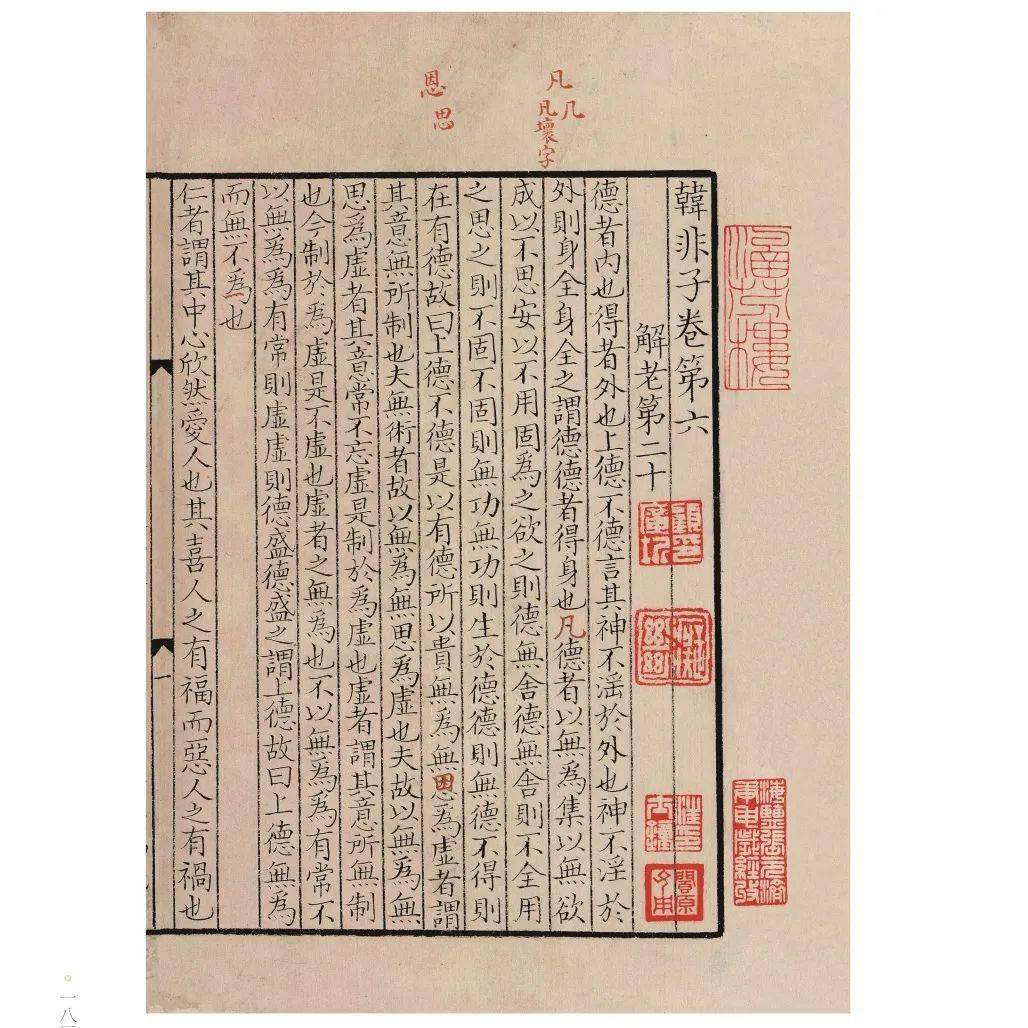 涵芬樓
海鹽張元濟
庚申歲經收
凡几
凡壞字
恩思
韓非子卷第六
解老第二十
德者内也得者外也上德不德言其神不淫於外也神不淫於
外則身全身全之謂德德者得身也凡德者以無爲集以無欲
成以不思安以不用固爲之欲之則德無舍德無舍則不全用
之思之則不固不固則無功無功則生於德德則無德不得則
在有德故曰上德不德是以有德所以貴無爲無恩爲虛者謂
其意無所制也夫無術者故以無爲無思爲虛也夫故以無爲無
思爲虛者其意常不忘虛是制於爲虛也虛者謂其意所無制
也今制於爲虛是不虛也虛者之無爲也不以無爲爲有常不
以無爲爲有常則虛虛則德盛德盛之謂上德故曰上德無爲
而無不爲也
仁者謂其中心欣然愛人也其喜人之有福而惡人之有禍也
一
一八